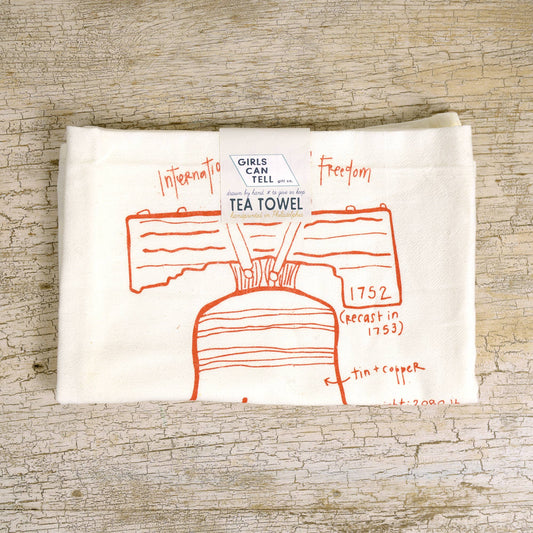 Internatio
Freedom
GIRLS
CAN
TELL
drawn by hand to give or keep
TEA TOWEL
handprinted in Philadelphia
1752
(recast in
1753)
tin + copper
2080 lb